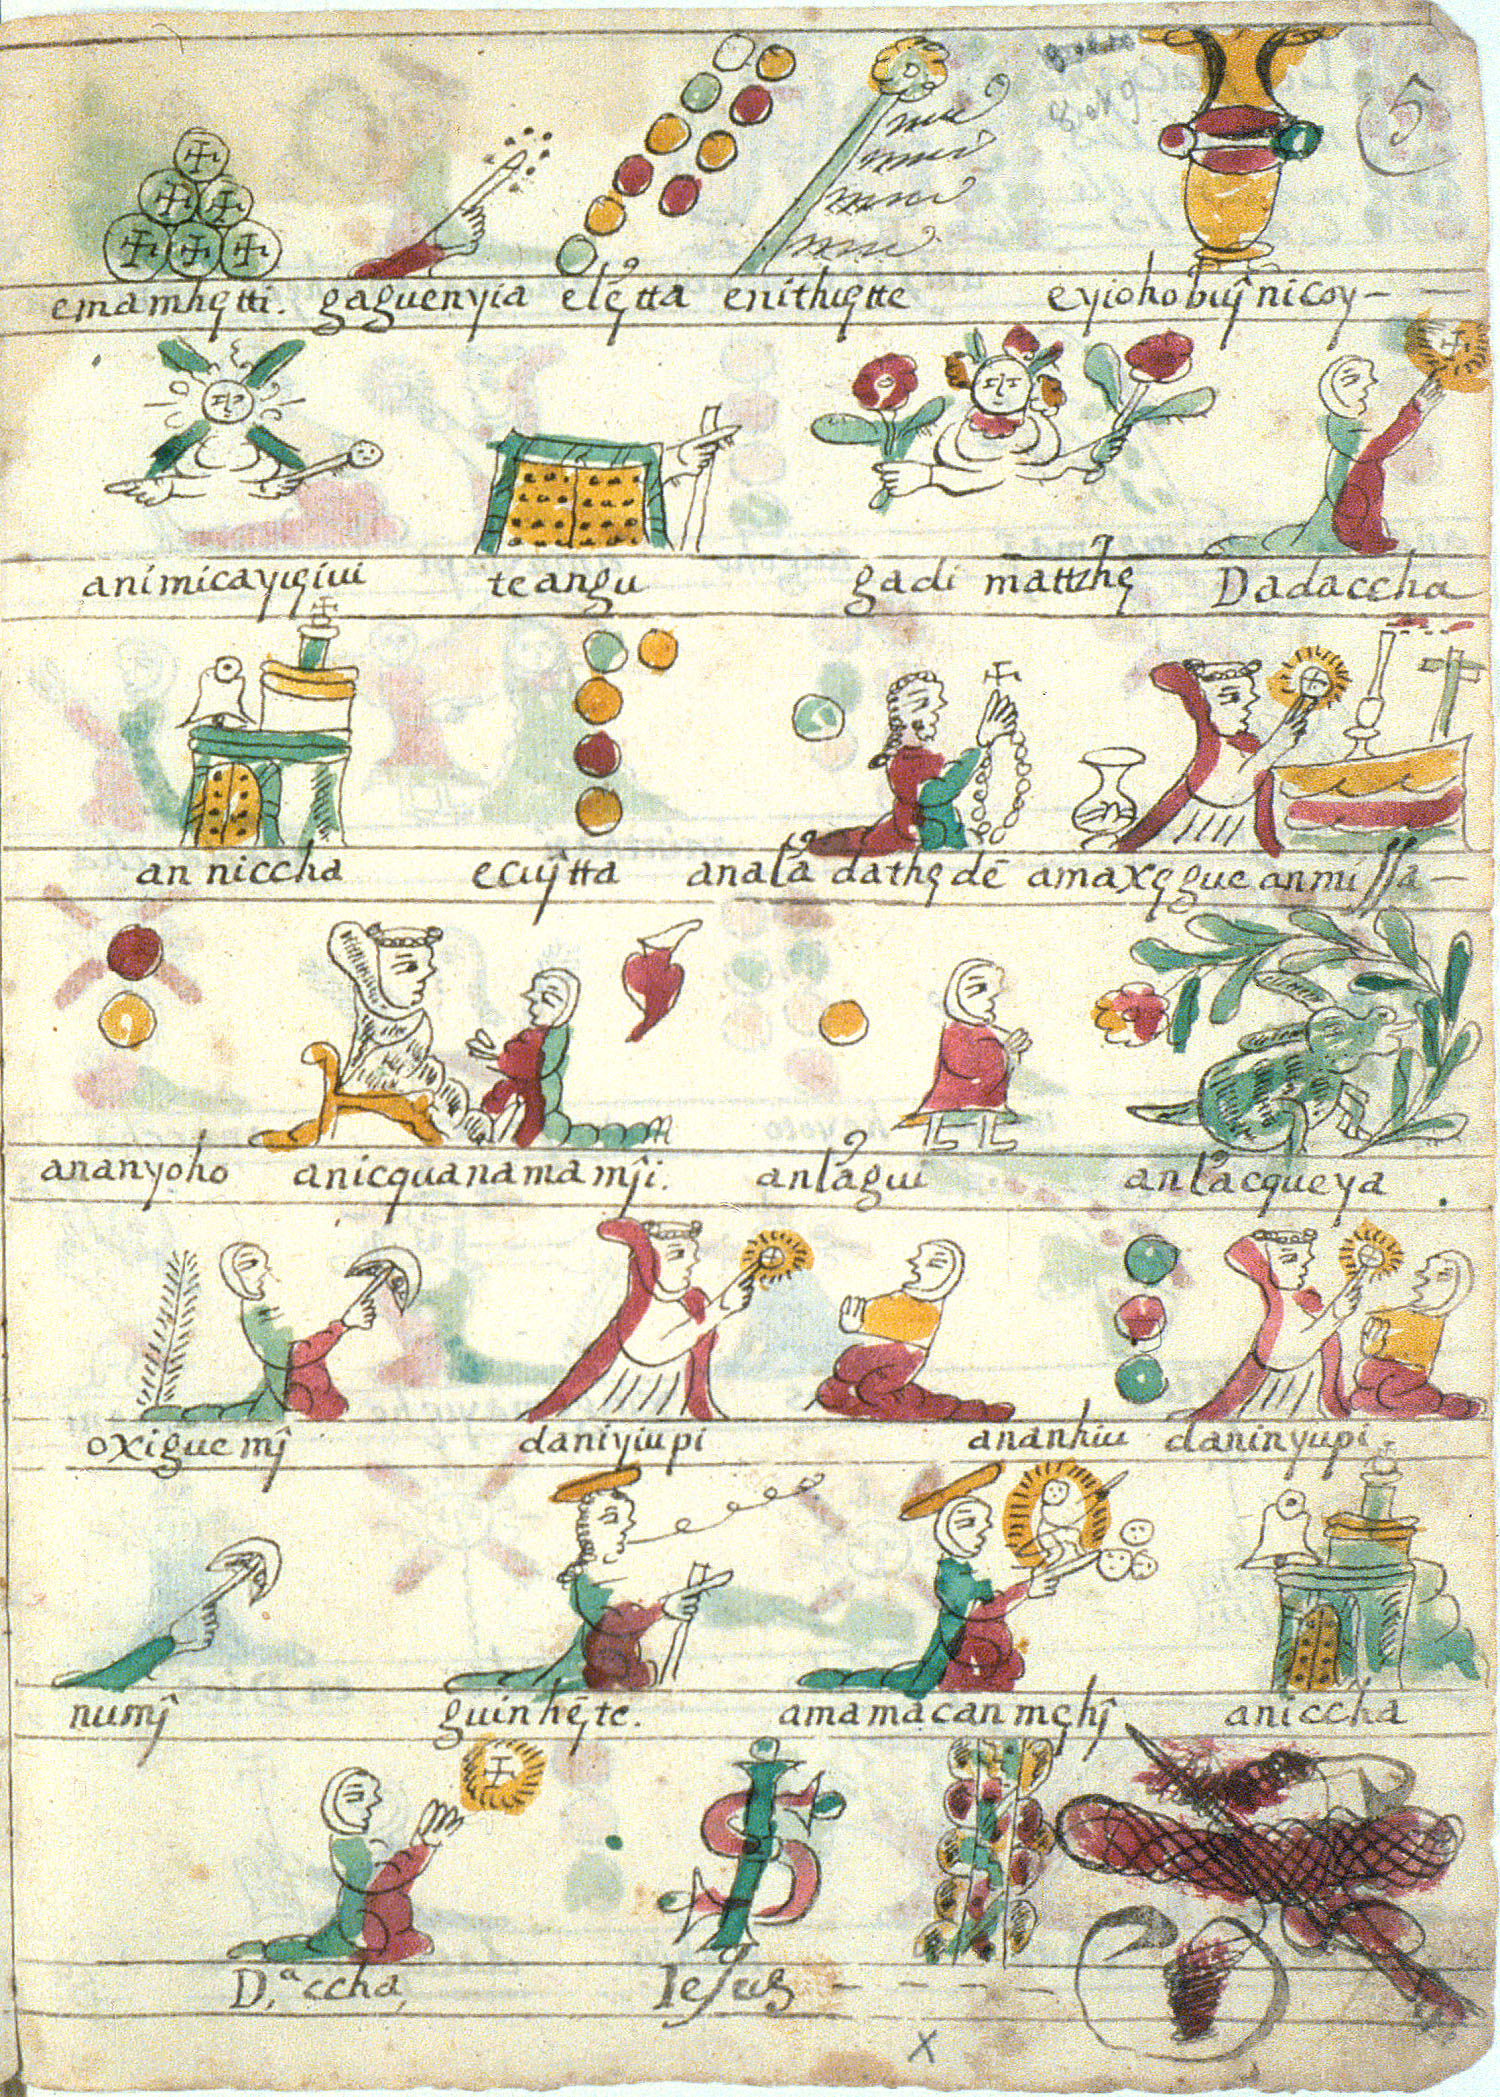 5
emamhętti. gaguenyia elętta eníthiętte eyiohobuŷ nicoy-
anímicayıgíui teangu gadi mattzhę Dadaccha
an niccha ecuŷtta analá dathędē amaxęgue anmissa-
ananyoho anicquanamamĵi. anlágui anlácqueya
oxigue mĵ daniyiupi ananhiu daninyupi
numĵ guinhęte. amamacanmęhĵ aniccha
D,ª ccha, Iesus
x